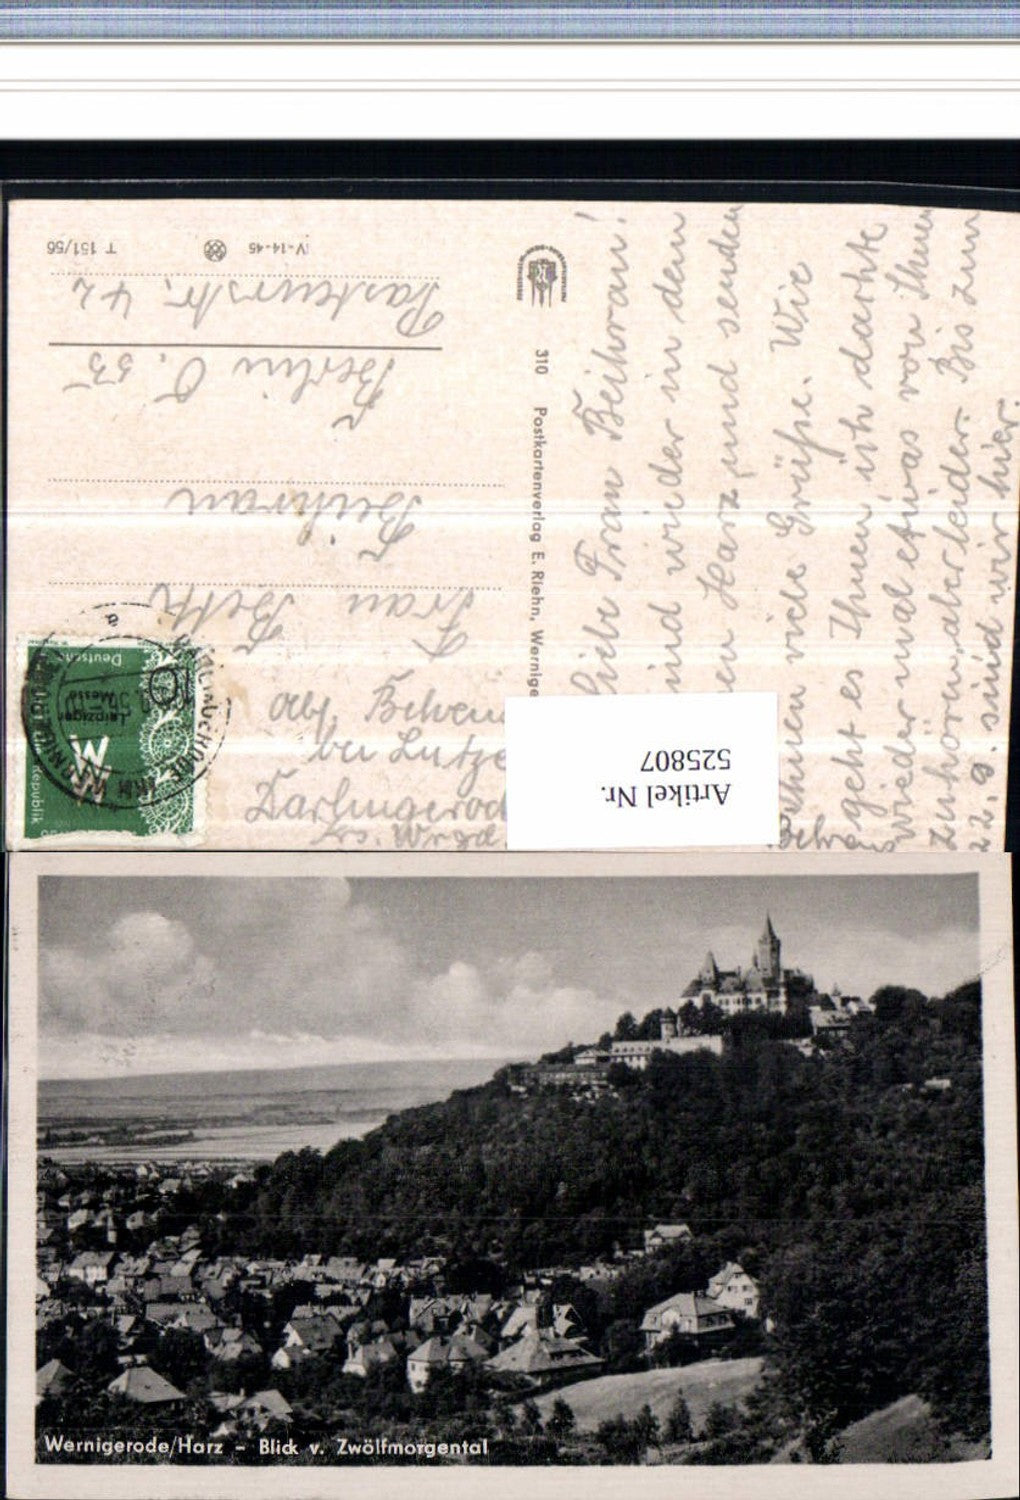 T 151/56
IV-14-45
Pasteurstr. 42
Berlin O, 55
Beihran
Frau Beth
Deutsche
Leipziger
Messe
Republik
Abs. Behrens
bei Lutze
Darlingerode
310 Postkartenverlag E. Riehn, Wernige
Liebe Frau Beihram!
sind wieder in den
en Harz und senden
Ihnen viele Grüße. Wie
geht es Ihnen ich dachte
wieder mal etwas von Ihnen
zu hören, aber leider. Bis zum
22.9. sind wir hier.
Behrens
Artikel Nr.
525807
Wernigerode/Harz – Blick v. Zwölfmorgental